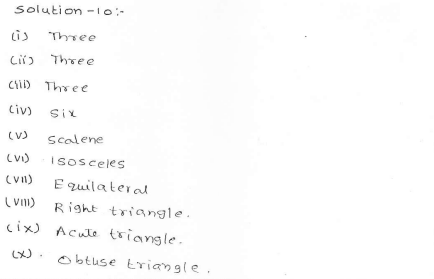 Solution-10:-
(i) Three
(ii) Three
(iii) Three
(iv) Six
(v) Scalene
(vi) Isosceles
(vii) Equilateral
(viii) Right triangle.
(ix) Acute triangle.
(x). Obtuse triangle.